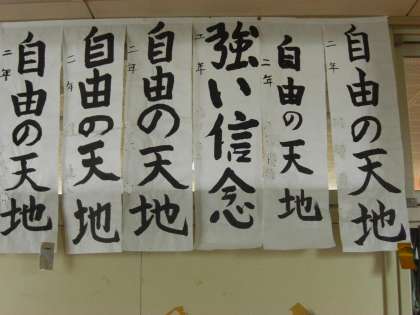 自由の天地
二年
自由の天地
二年
強い信念
年
自由の天地
二年
自由の天地
二年
自由の天地
二年